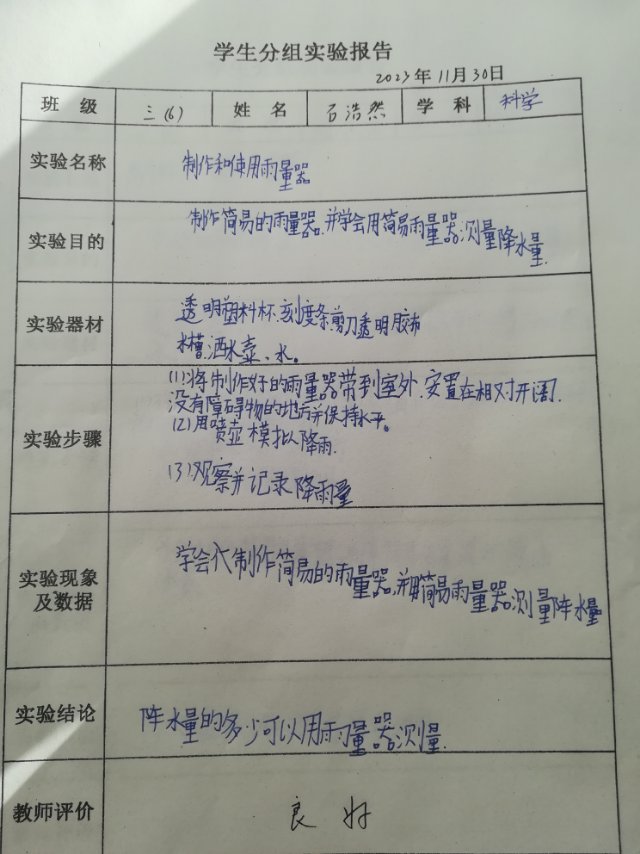 学生分组实验报告
2023年11月30日
班 级 三(6) 姓 名 石浩然 学 科 科学
实验名称 制作和使用雨量器
实验目的 制作简易的雨量器.并学会用简易雨量器测量降水量.
实验器材 透明塑料杯.刻度条剪刀透明胶布
水槽.洒水壶、水。
实验步骤 (1)将制作好的雨量器带到室外.安置在相对开阔.
没有障碍物的地方并保持水平。
(2)用喷壶模拟降雨.
(3)观察并记录降雨量
实验现象及数据 学会制作简易的雨量器,并用简易雨量器测量阵水量
实验结论 阵水量的多少可以用雨量器测量.
教师评价 良 好